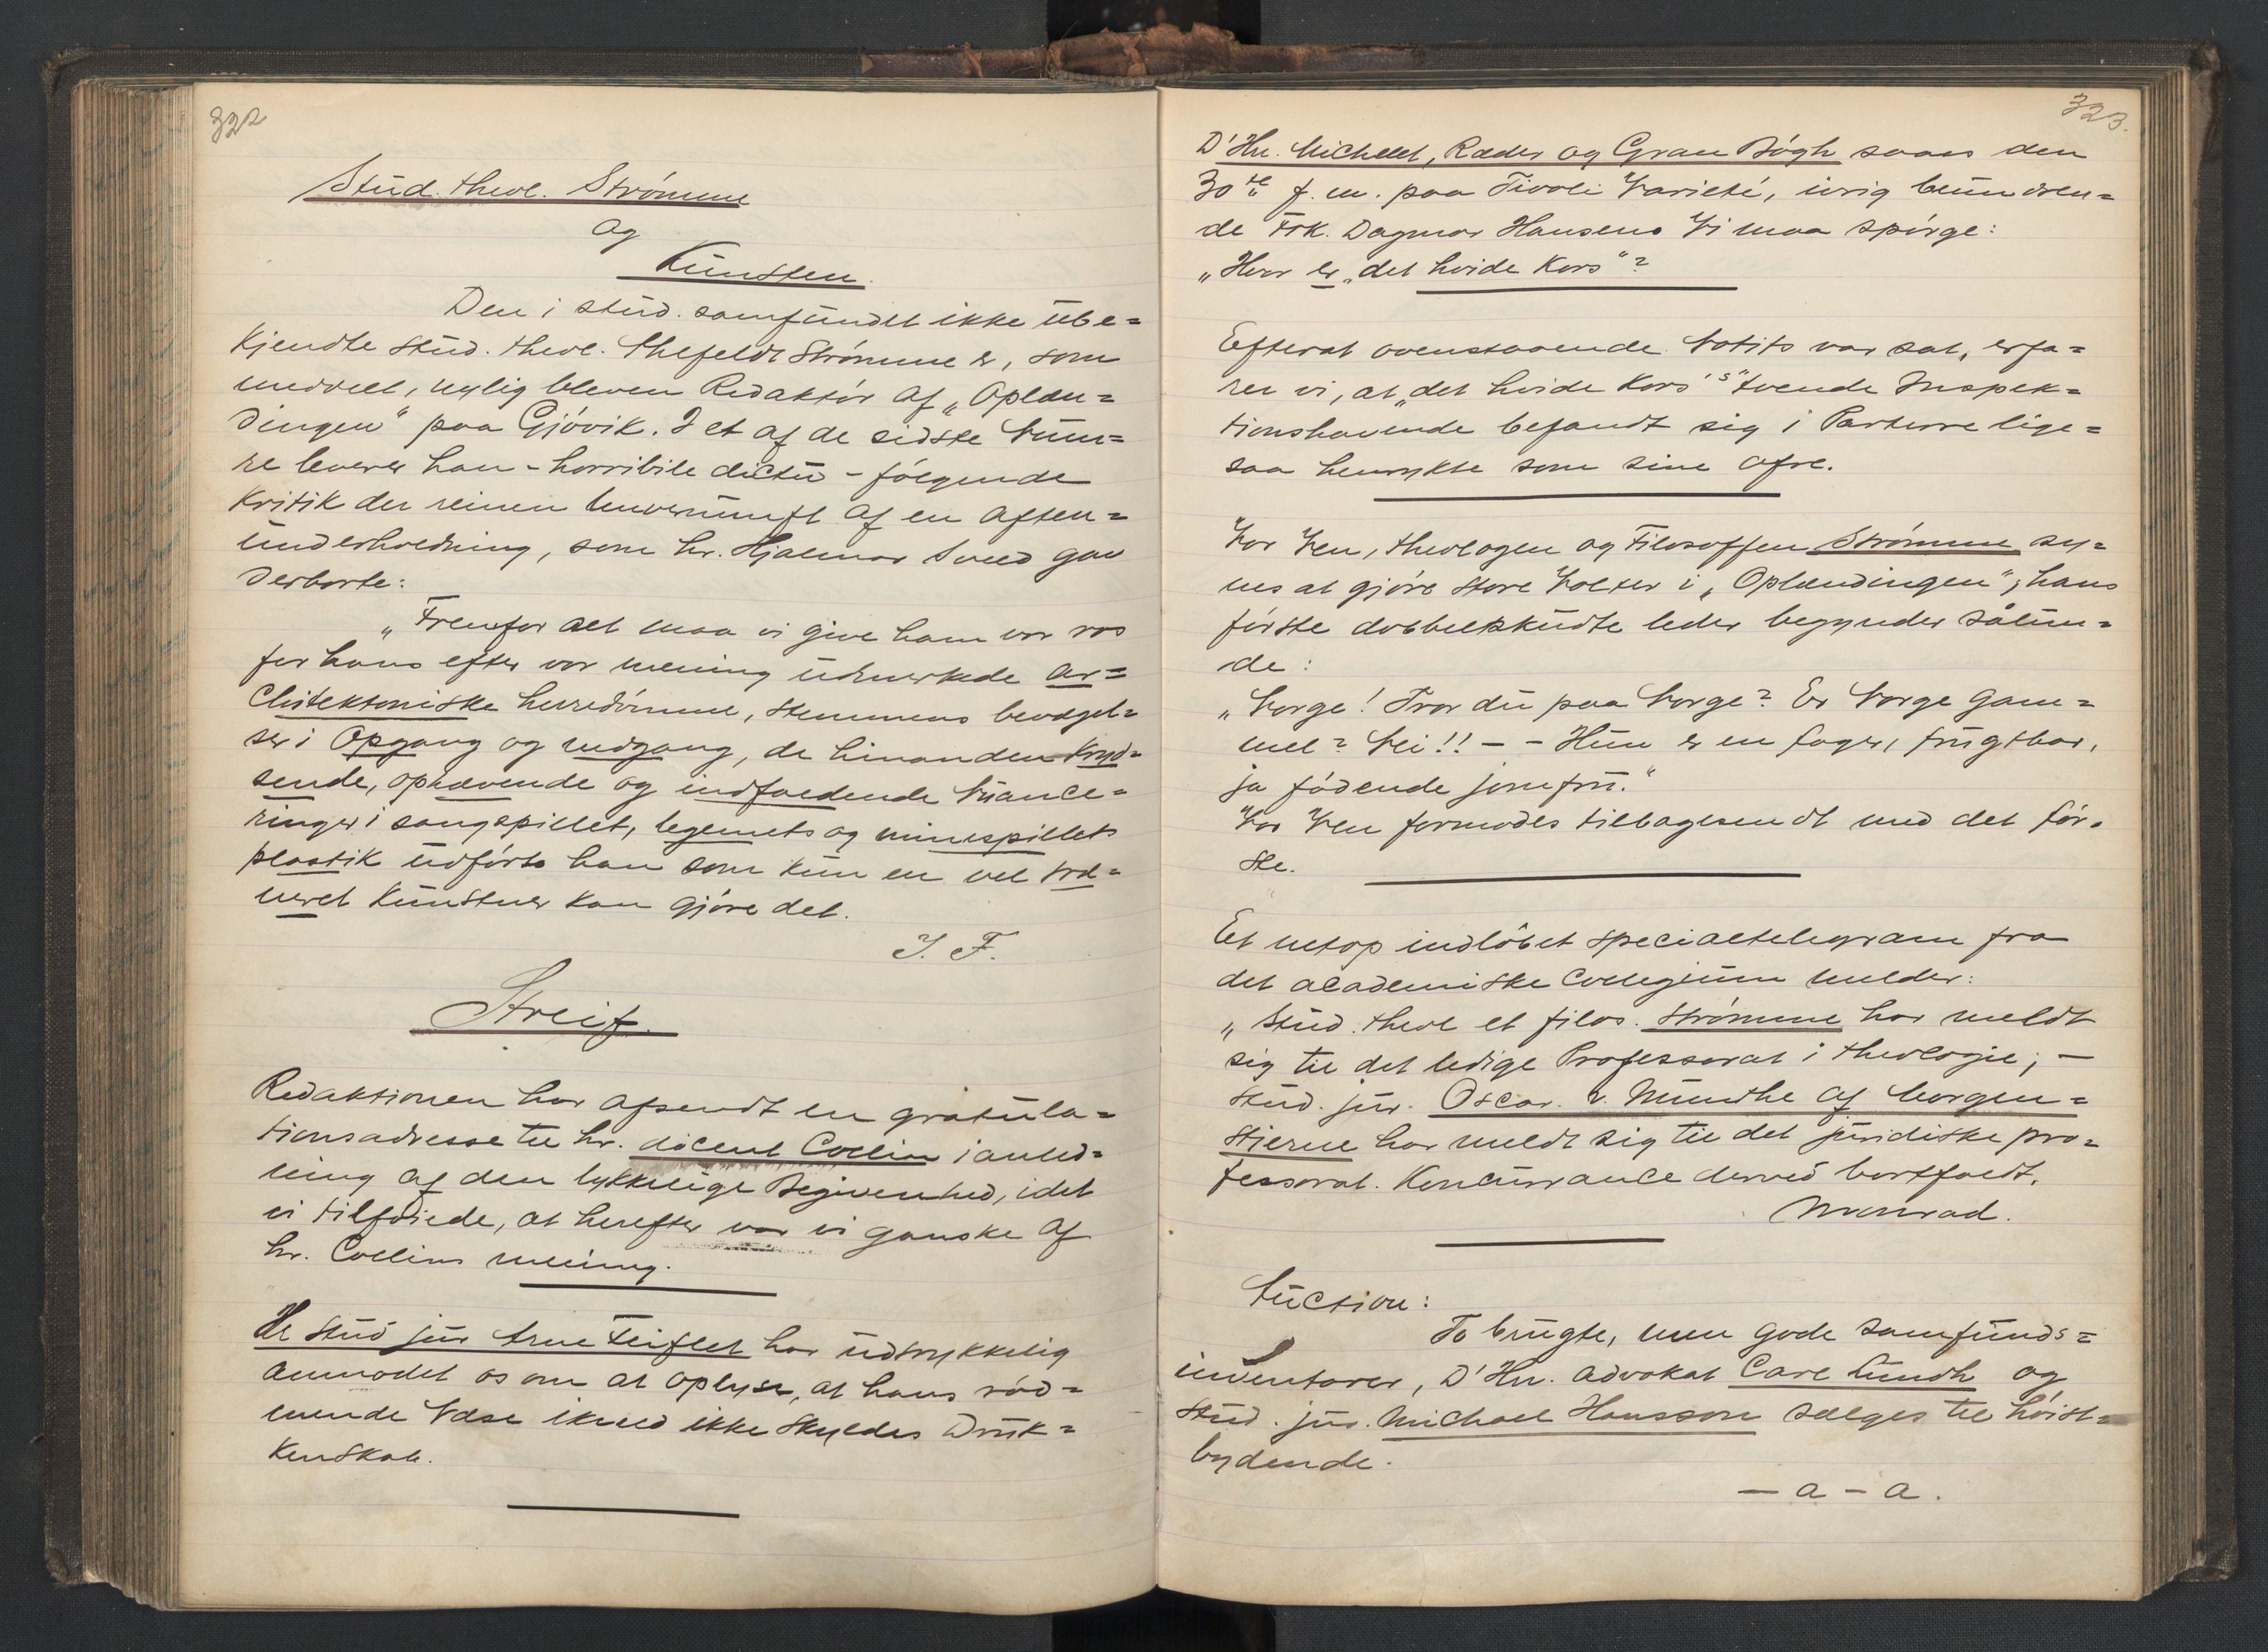 322
Stud. theol. Strømme
og
Kunsten.
Den i stud. samfundet ikke ube=
kjendte stud. theol. Ihlefeldt Strømme er, som
meddelt, nylig bleven Redaktør af „Oplæn=
dingen“ paa Gjøvik. I et af de sidste Num=
re leverer han - horribile dictu - følgende
Kritik der reinen Unvernunft af en aften=
underholdning, som hr. Hjalmar Sved gav
derborte:
„Fremfor alt maa vi give ham vor ros
for hans efter vor mening udmerkede ar=
chitektoniske herredømme, stemmens bevægel=
ser i Opgang og nedgang, de hinanden kryd=
sende, ophævende og indfoldende Nuance=
ringer i sangspillet, legemets og minespillets
plastik udførte han som kun en vel træ=
neret Kunstner kan gjøre det.
I. F.
Streif.
Redaktionen har afsendt en gratula=
tionsadresse til hr. docent Collin i anled=
ning af den lykkelige Begivenhed, idet
vi tilføiede, at herefter var vi ganske af
hr. Collins mening.
Hr stud jur Arne Feiflet har udtrykkelig
anmodet os om at oplyse, at hans rød=
mende Næse ikveld ikke skyldes Druk=
kenskab.
323.
D'Hrr. Michelet, Ræder og Gran Bøgh saaes den
30te f. m. paa Tivoli Varieté, ivrig beundren=
de Frk. Dagmar Hansen. Vi maa spørge:
„Hvor er „det hvide Kors“?
Efterat ovenstaaende Notits var sat, erfa=
rer vi, at „det hvide Kors's“ tvende Inspek=
tionshavende befandt sig i Parterre lige=
saa henrykte som sine ofre.
Vor Ven, theologen og Filosoffen Strømme sy=
nes at gjøre store Volter i „Oplændingen“; hans
første dobbeltskudte leder begynder sålun=
de:
„Norge! Tror du paa Norge? Er Norge gam=
mel? Nei!! - - Hun er en fager, frugtbar,
ja fødende jomfru.“
Vor Ven formodes tilbagesendt med det før=
ste.
Et netop indløbet specialtelegram fra
det academiske Collegium melder:
„Stud. theol et filos. Strømme har meldt
sig til det ledige Professorat i theologie; —
Stud. jur. Oscar. v. Munthe af Morgen=
stierne har meldt sig til det juridiske pro=
fessorat. Koncurrance derved bortfaldt.
Monrad.
Auction:
To brugte, men gode samfunds=
inventarer, D'Hrr. advokat Carl Lundh og
Stud. jur. Michael Hansson sælges til høist=
bydende.
— a — a.